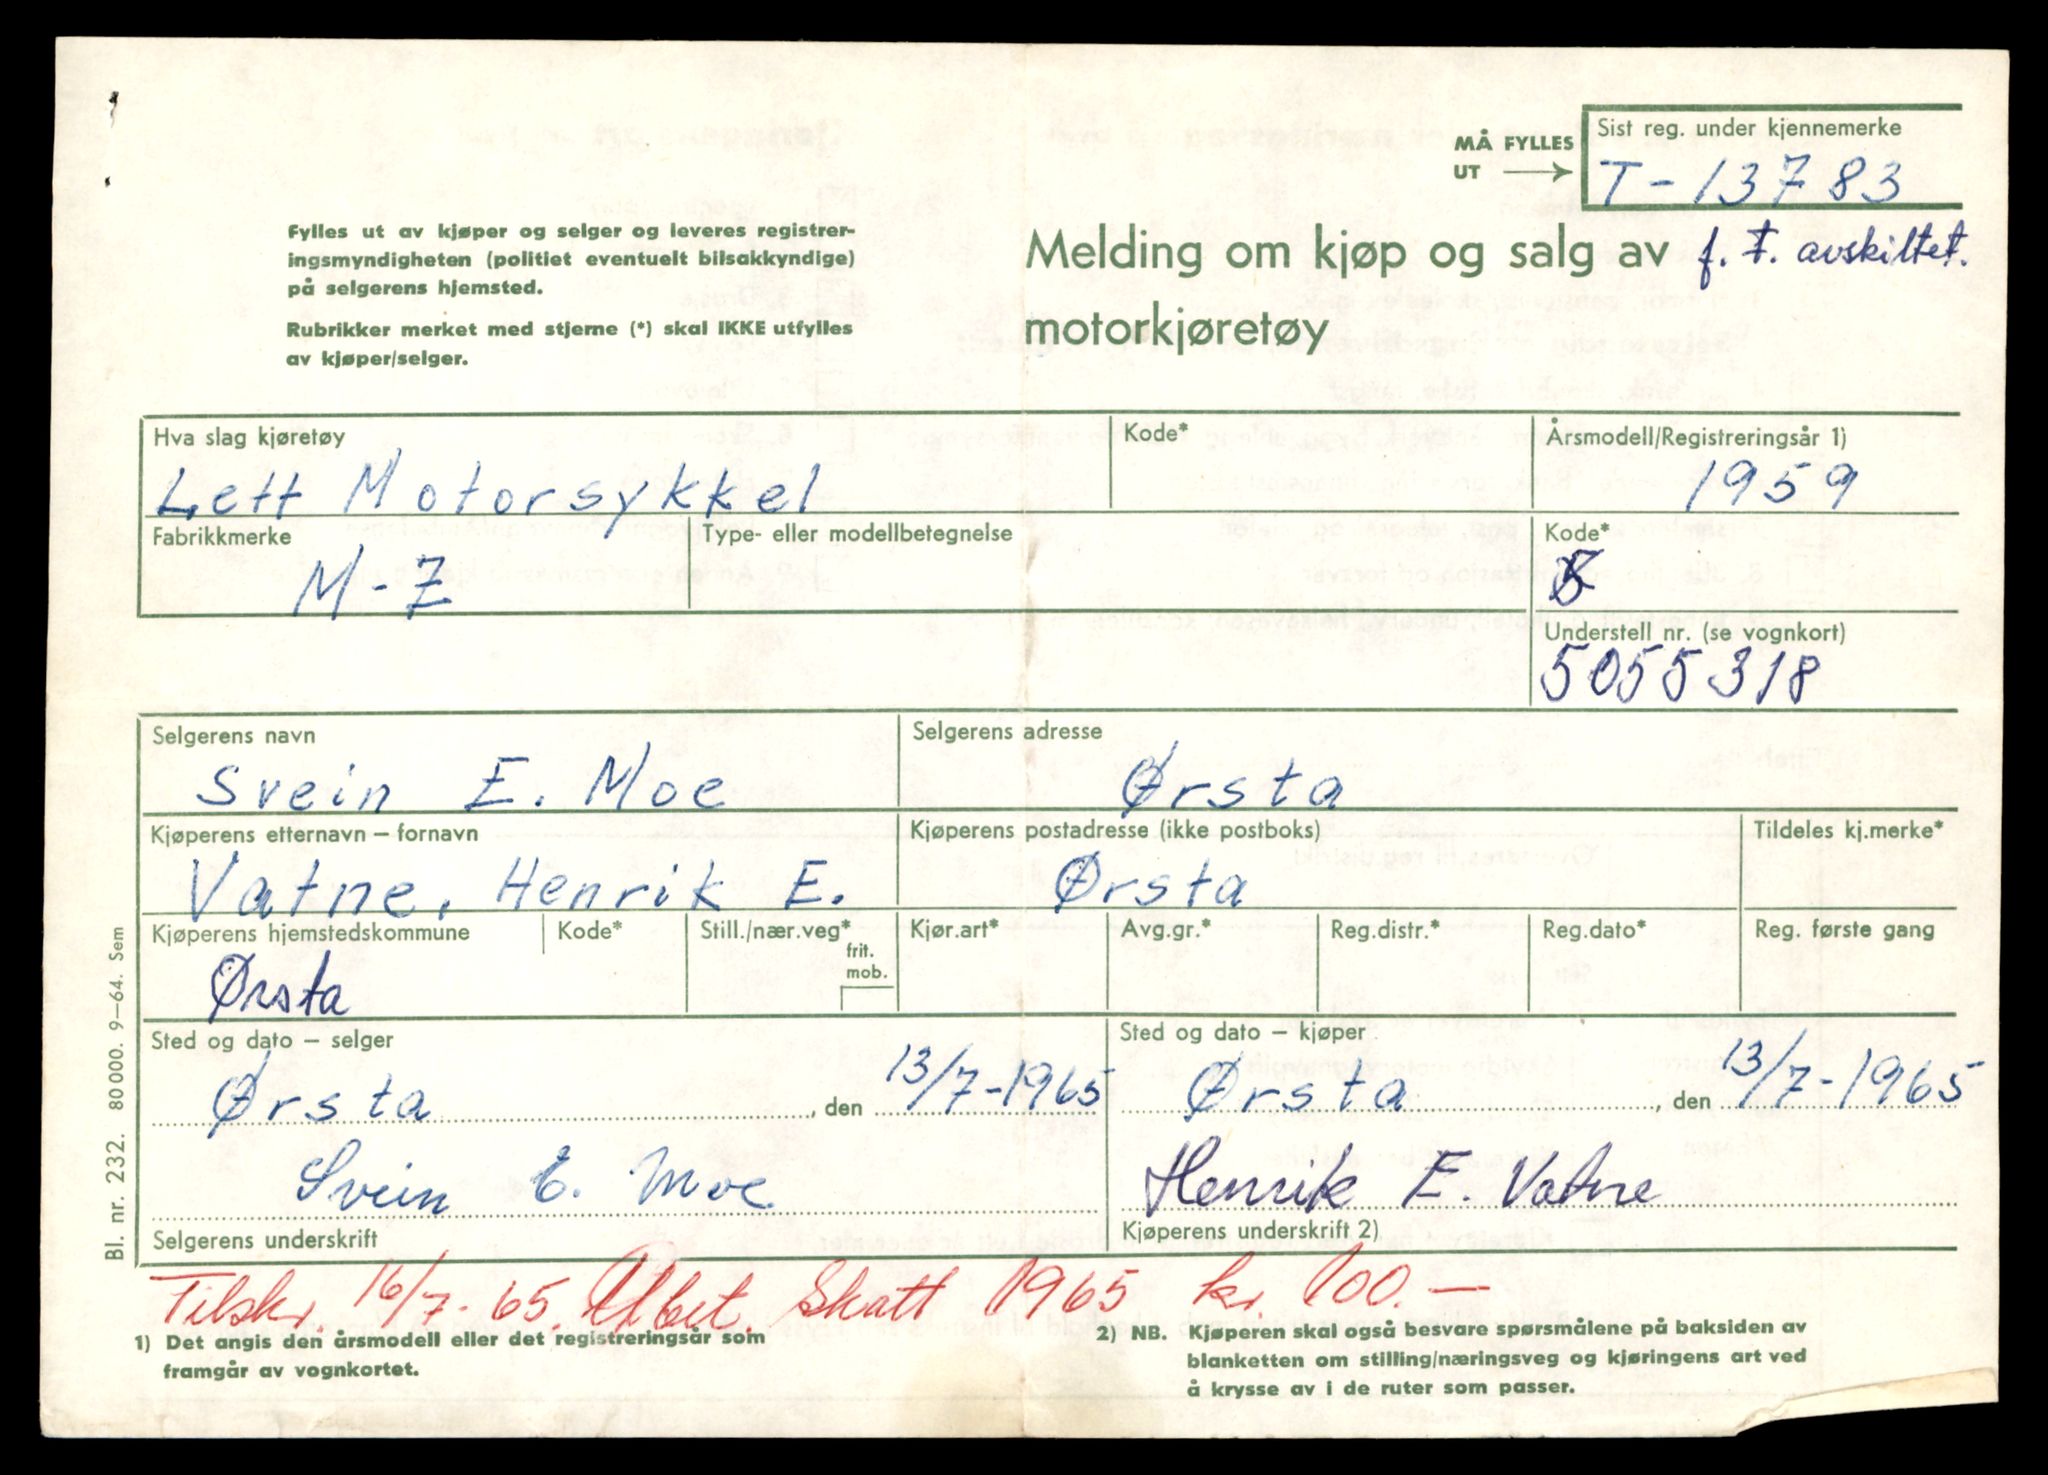 Sist reg. under kjennemerke
MÅ FYLLES
UT
T - 13783
Fylles ut av kjøper og selger og leveres registrer-
ingsmyndigheten (politiet eventuelt bilsakkyndige)
på selgerens hjemsted.
Rubrikker merket med stjerne (*) skal IKKE utfylles
av kjøper/selger.
Melding om kjøp og salg av
motorkjøretøy
f. t. avskiltet.
Hva slag kjøretøy
Kode*
Årsmodell/Registreringsår 1)
Lett Motorsykkel
1959
Fabrikkmerke
Type- eller modellbetegnelse
Kode*
M - Z
Understell nr. (se vognkort)
5055318
Selgerens navn
Selgerens adresse
Svein E. Moe
Ørsta
Kjøperens etternavn – fornavn
Kjøperens postadresse (ikke postboks)
Tildeles kj.merke*
Vatne, Henrik E.
Ørsta
Kjøperens hjemstedskommune
Kode*
Still./nær.veg*
frit.
mob.
Kjør.art*
Avg.gr.*
Reg.distr.*
Reg.dato*
Reg. første gang
Ørsta
Sted og dato – selger
Sted og dato – kjøper
Ørsta, den 13/7-1965
Ørsta, den 13/7-1965
Svein E. Moe
Henrik E. Vatne
Selgerens underskrift
Kjøperens underskrift 2)
Tilskr. 16/7-65. Skatt 1965 kr. 100.—
1) Det angis den årsmodell eller det registreringsår som
framgår av vognkortet.
2) NB. Kjøperen skal også besvare spørsmålene på baksiden av
blanketten om stilling/næringsveg og kjøringens art ved
å krysse av i de ruter som passer.
Bl. nr. 232. 80 000. 9–64. Sem